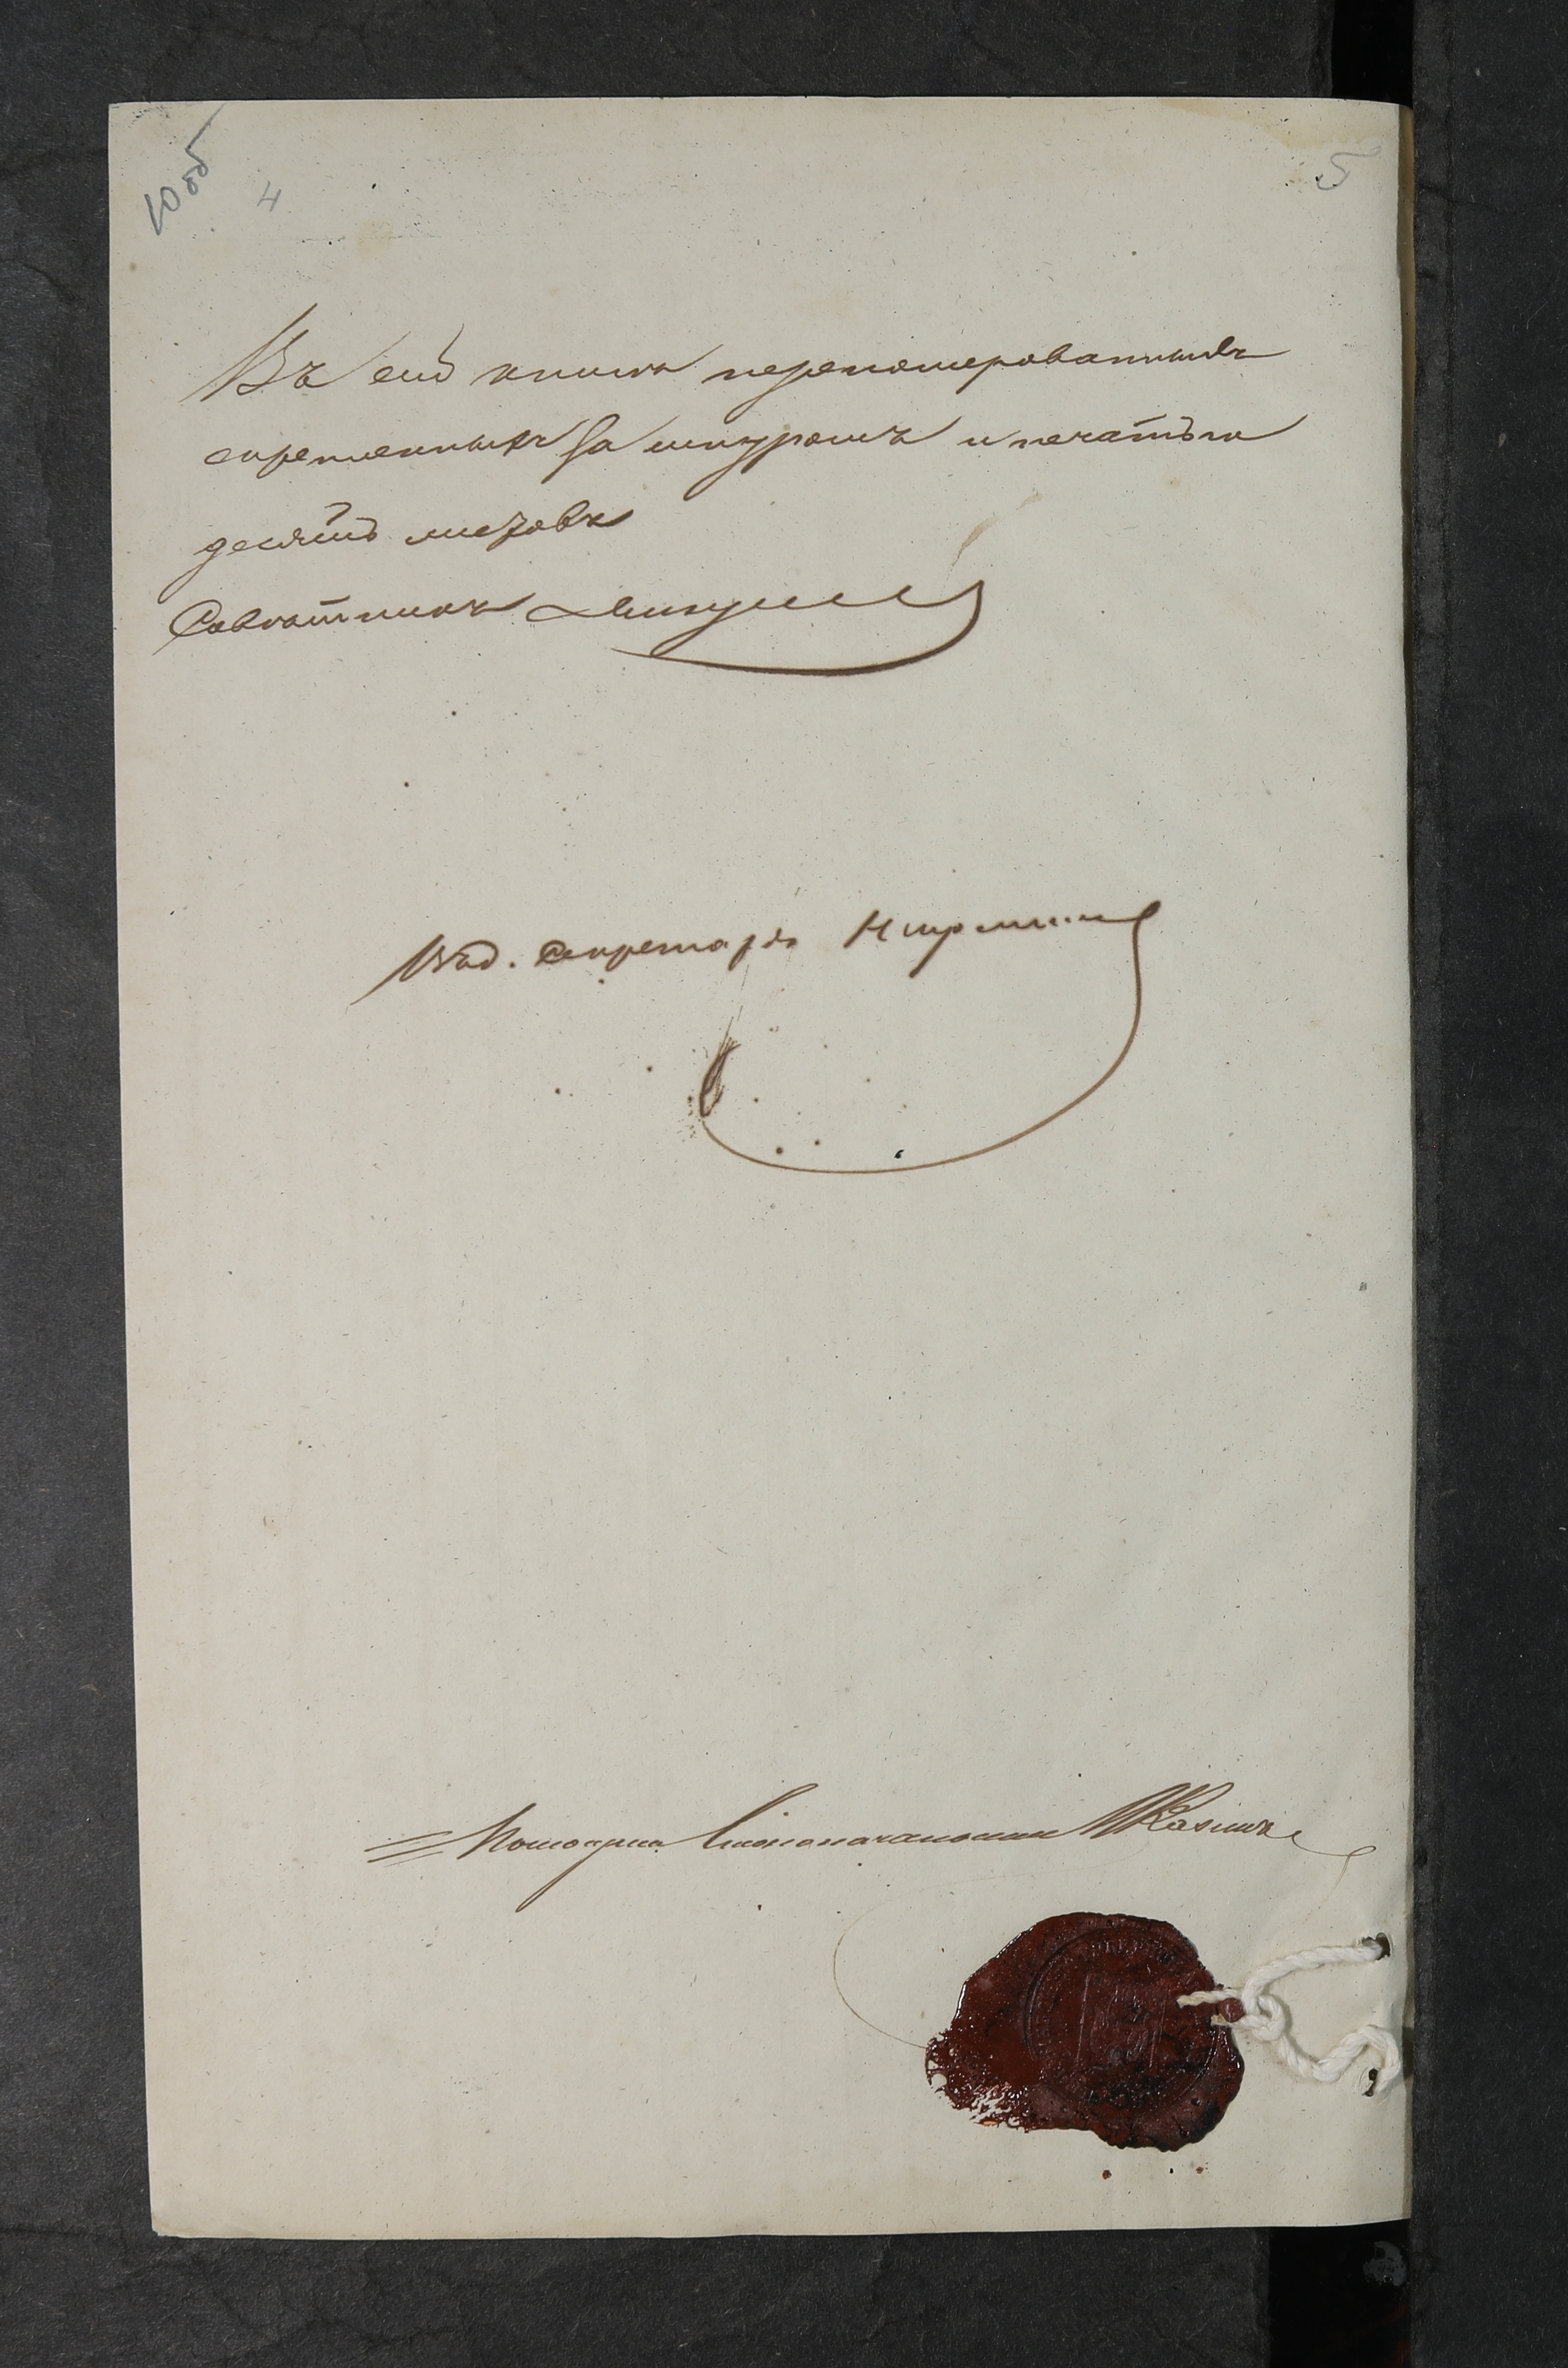 10 об
4
5
Въ сей книге перенумерованныхъ
скрепленныхъ за шнуромъ и печатью
десять листовъ
Советникъ
Над. Секретарь
Помощникъ Столоначальника